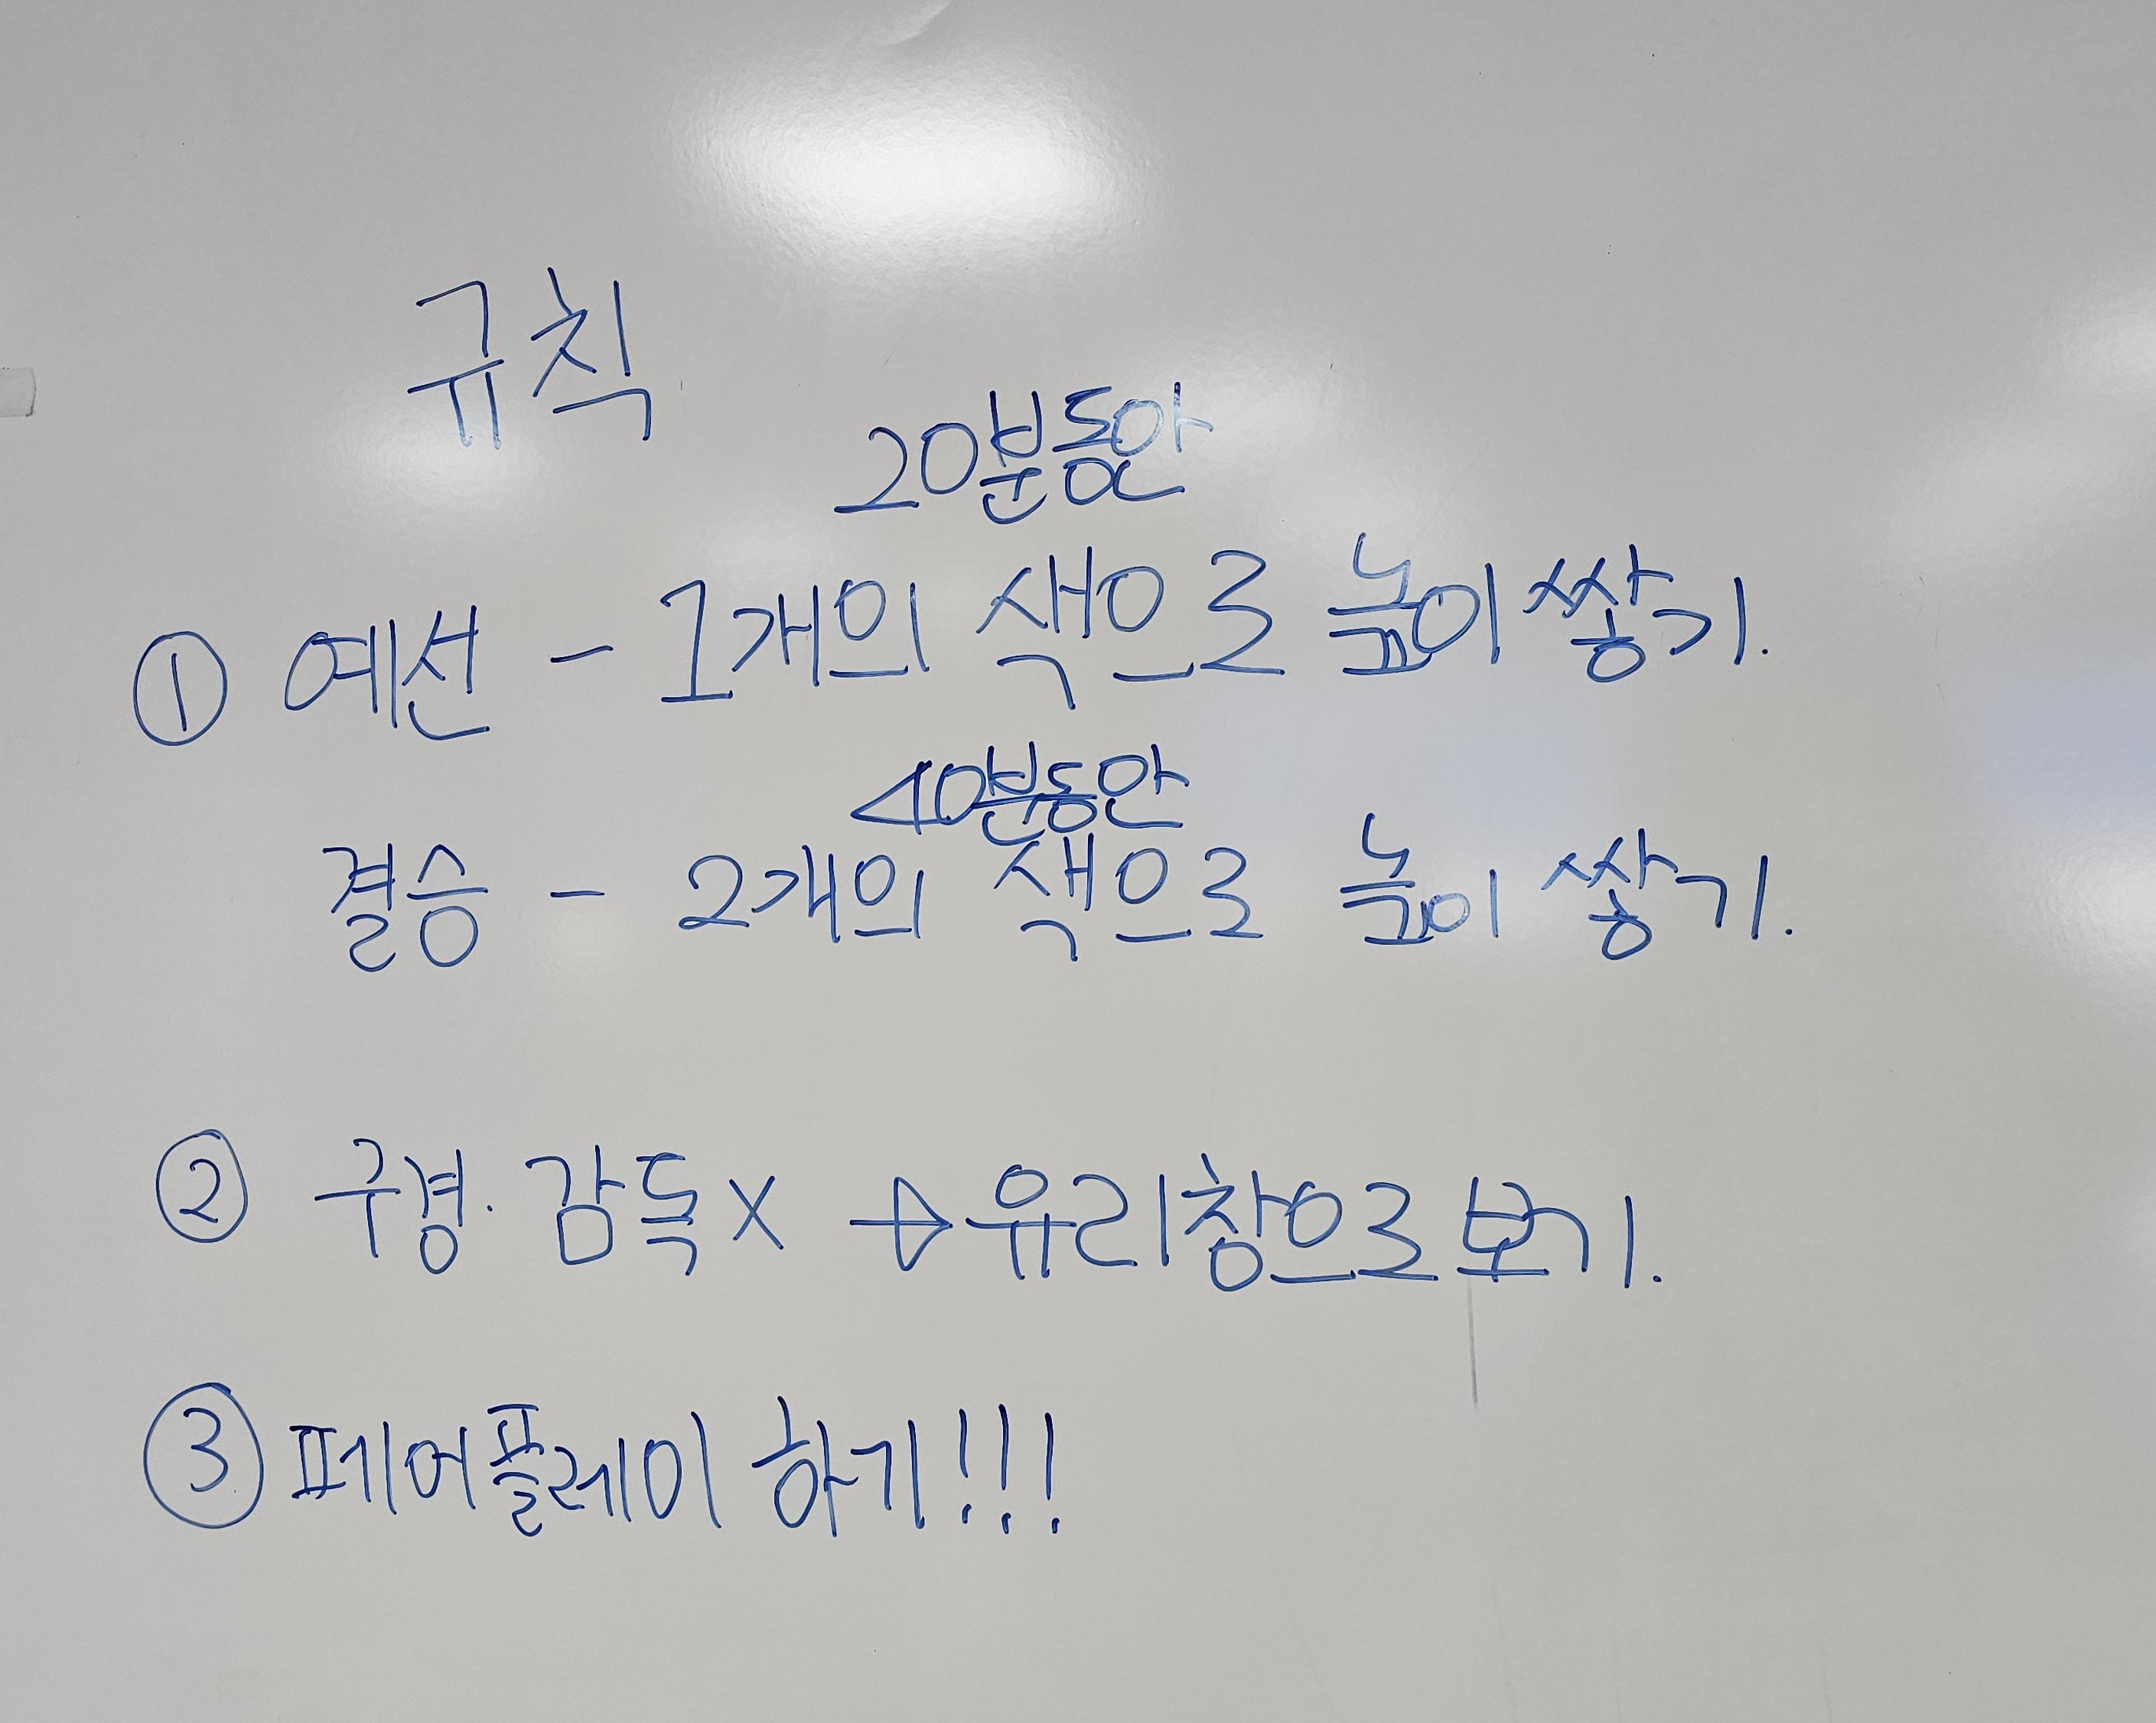 규칙
20분동안
① 예선 - 1개의 색으로 높이 쌓기.
40분동안
결승 - 2개의 색으로 높이 쌓기.
② 구경. 감독 X → 유리창으로 보기.
③ 페어플레이 하기!!!